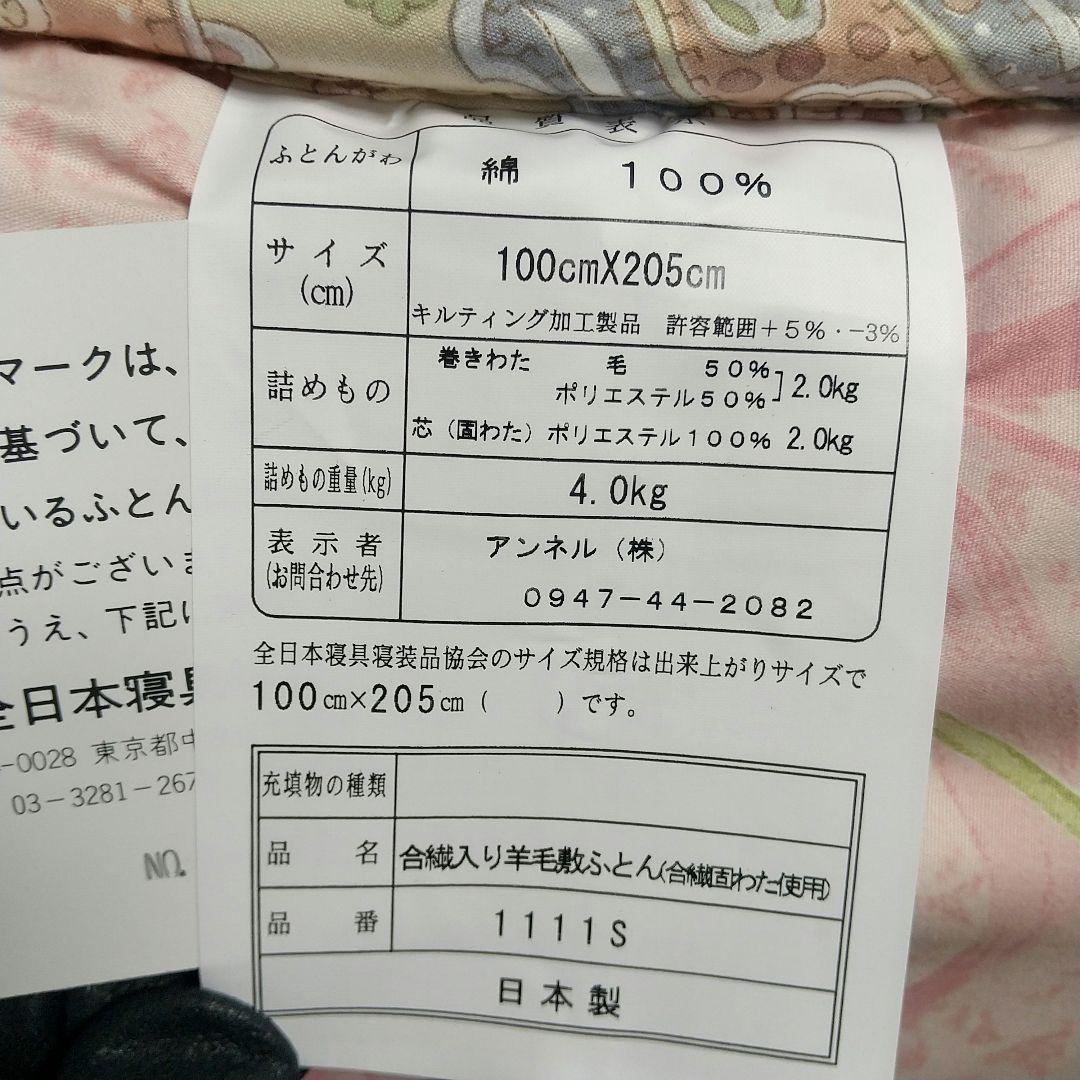 品質表示
ふとんがわ 綿 １００％
サイズ(cm) 100cmX205cm
キルティング加工製品 許容範囲＋５％・−３％
詰めもの 巻きわた 毛 ５０％
ポリエステル５０％ 2.0kg
芯（固わた）ポリエステル１００％ 2.0kg
詰めもの重量(kg) 4.0kg
表示者 アンネル（株）
(お問合わせ先) ０９４７−４４−２０８２
全日本寝具寝装品協会のサイズ規格は出来上がりサイズで
100㎝×205㎝（ ）です。
充填物の種類
品名 合繊入り羊毛敷ふとん(合繊固わた使用)
品番 1111S
日本製
マークは、
基づいて、
いるふとん
点がござい
うえ、下記
全日本寝具
-0028 東京都中
03−3281−267
NO.